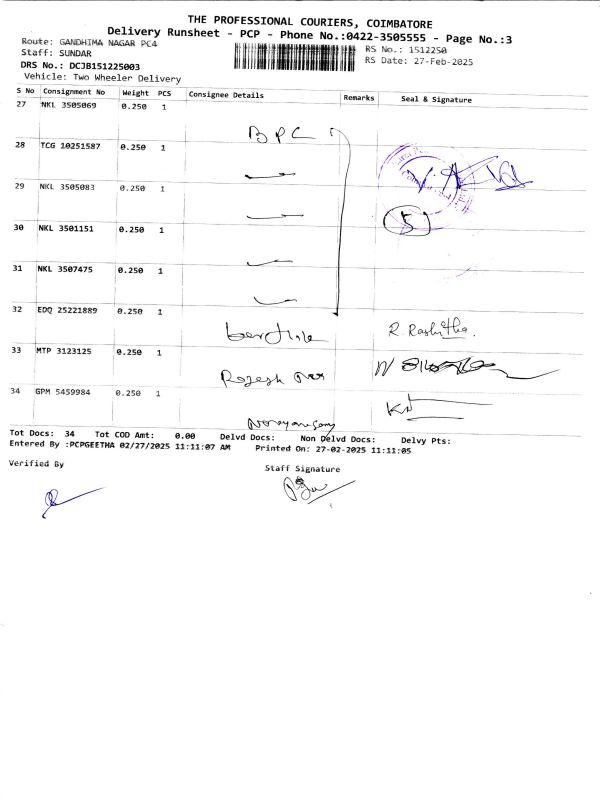 THE PROFESSIONAL COURIERS, COIMBATORE
Delivery Runsheet - PCP - Phone No.:0422-3505555 - Page No.:3
Route: GANDHIMA NAGAR PC4
RS No.: 1512250
Staff: SUNDAR
RS Date: 27-Feb-2025
DRS No.: DCJB151225003
Vehicle: Two Wheeler Delivery
S No Consignment No Weight PCS Consignee Details Remarks Seal & Signature
27 NKL 3505069 0.250 1
BPC
28 TCG 10251587 0.250 1
29 NKL 3505083 0.250 1
5
30 NKL 3501151 0.250 1
31 NKL 3507475 0.250 1
32 EDQ 25221889 0.250 1
R. Rashitha.
33 MTP 3123125 0.250 1
Rajesh
34 GPM 5459984 0.250 1
Narayanasamy
Tot Docs: 34 Tot COD Amt: 0.00 Delvd Docs: Non Delvd Docs: Delvy Pts:
Entered By :PCPGEETHA 02/27/2025 11:11:07 AM Printed On: 27-02-2025 11:11:05
Verified By
Staff Signature